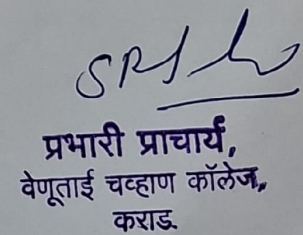 प्रभारी प्राचार्य,
वेणूताई चव्हाण कॉलेज,
कराड.